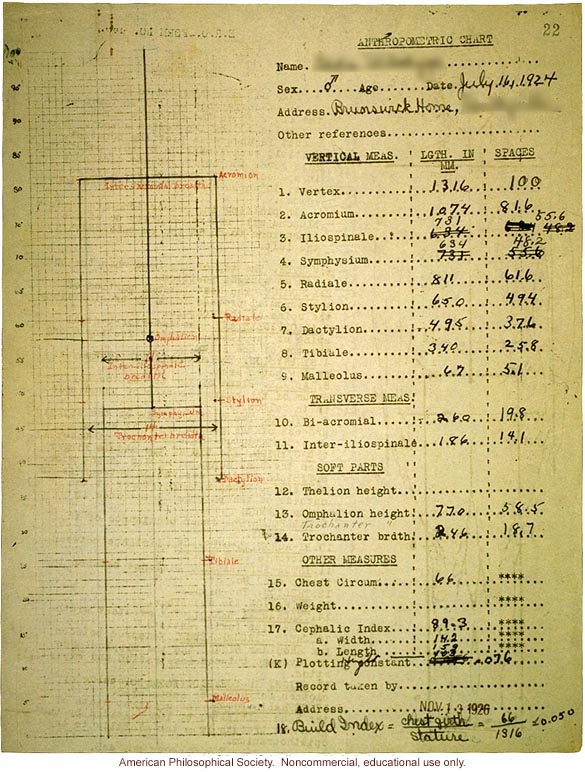 22
ANTHROPOMETRIC CHART
Name.
Sex....♂....Age........Date. July.16,.1924
Address. Brunswick Home,
Other references
VERTICAL MEAS. LGTH. IN MM. SPACES
1. Vertex 1316 100
2. Acromium 1074 81.6
3. Iliospinale 731 55.6
4. Symphysium 634 48.2
5. Radiale 811 61.6
6. Stylion 650 49.4
7. Dactylion 495 37.6
8. Tibiale 340 25.8
9. Malleolus 67 5.1
TRANSVERSE MEAS.
10. Bi-acromial 260 19.8
11. Inter-iliospinale 186 14.1
SOFT PARTS
12. Thelion height
13. Omphalion height 770 58.5
Trochanter "
14. Trochanter brdth. 246 18.7
OTHER MEASURES
15. Chest Circum. 66 ****
16. Weight ****
17. Cephalic Index 89.3 ****
a. Width 142 ****
b. Length ****
(K) Plotting Constant .076
Record taken by
Address
NOV 13 1926
18. Build Index = chest girth / stature = 66 / 1316 = 0.050
Acromion
Inter acromial breadth
Radiale
Omphalion
Inter iliospinale breadth
Stylion
Symphysion
Trochanter breadth
Dactylion
Tibiale
Malleolus
American Philosophical Society. Noncommercial, educational use only.